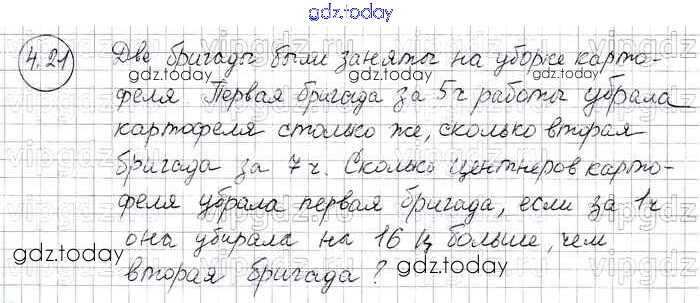 gdz.today
4.21 Две бригады были заняты на уборке карто-
gdz.today gdz.today
феля Первая бригада за 5ч работы убрала
картофеля столько же, сколько вторая
gdz.today gdz.today
бригада за 7 ч. Сколько центнеров карто-
феля убрала первая бригада, если за 1ч
gdz.today
она убирала на 16 ц больше, чем
gdz.today
вторая бригада?